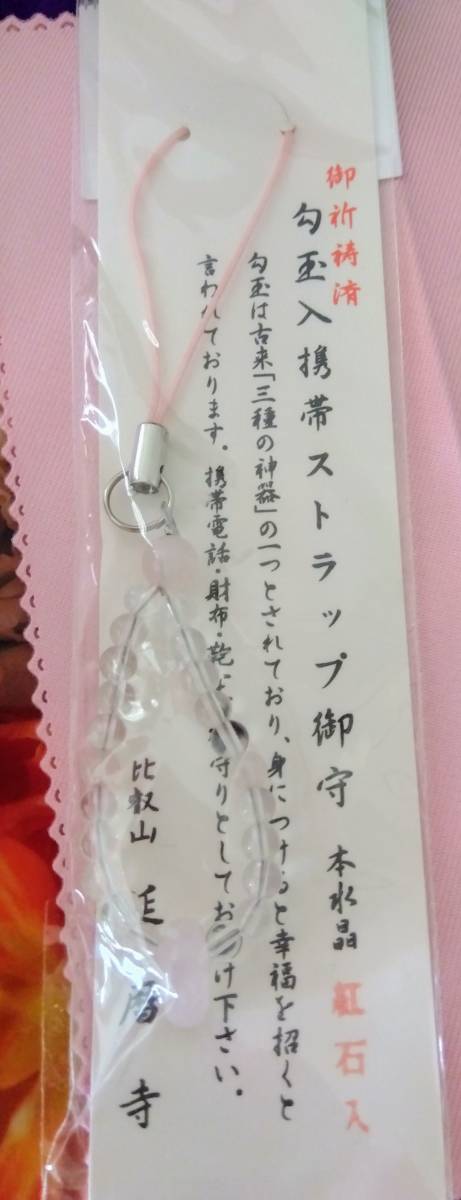 御祈祷済
勾玉入携帯ストラップ御守 本水晶 紅石入
勾玉は古来「三種の神器」の一つとされており、身につけると幸福を招くと
言われております。携帯電話・財布・鞄 守りとしてお け下さい。
比叡山 延暦寺